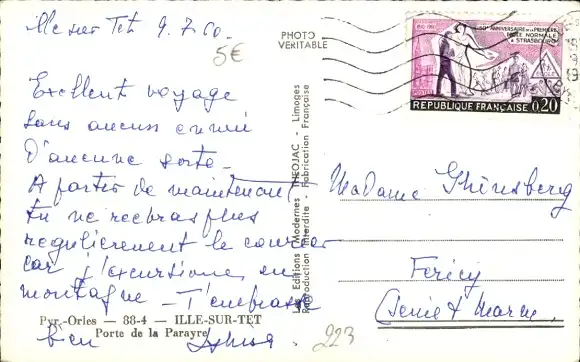 Ille sur Tet 9.7.60.
5€
Excellent voyage
sans aucun ennui
d'aucune sorte.
A partir de maintenant
tu ne recevras plus
regulierement le courrier
car j'excursionne en
montagne - T'embrasse
bien
Pyr.-Orles — 88-4 — ILLE-SUR-TET
Porte de la Parayre
PHOTO
VERITABLE
Les Editions Modernes THEOJAC, Limoges
Reproduction Interdite Fabrication Française
150e ANNIVERSAIRE de la PREMIERE
ECOLE NORMALE
STRASBOURG
REPUBLIQUE FRANÇAISE 0,20
Madame Ghinsberg
Fericy
(Seine et Marne)
223